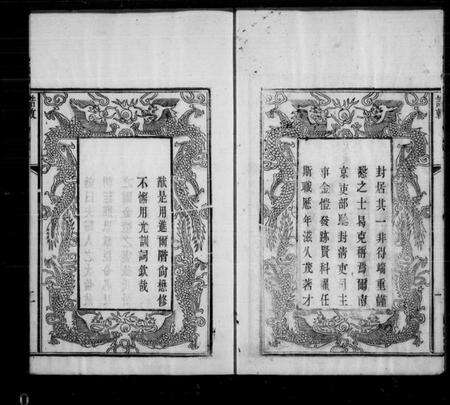 封居其一非得端重脩
整之士曷克稱焉爾南
京吏部驗封清吏司主
事金愷發跡賢科擢任
斯職歷年滋久茂著才
猷是用進爾階尚懋修
不懈用光訓詞欽哉
誥敕